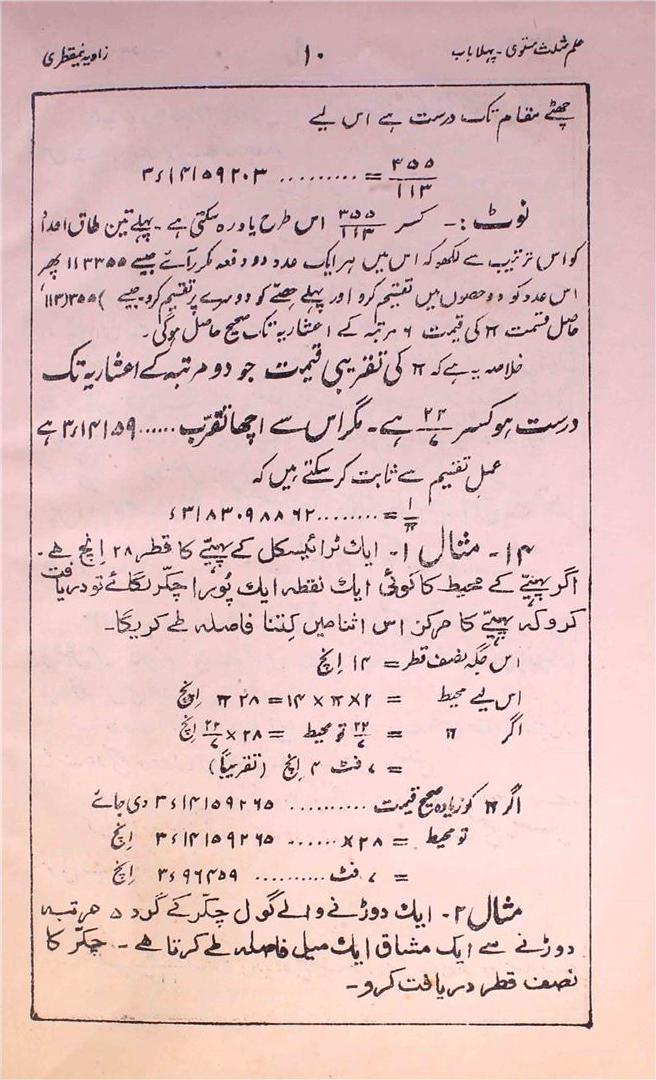 علم مثلث ستوی - پہلا باب ۱۰ زاویہ نیمقطری
چھٹے مقام تک درست ہے اس لیے
۳۵۵/۱۱۳ = ......... ۳ء۱۴۱۵۹۲۰۳
نوٹ :- کسر ۳۵۵/۱۱۳ اس طرح یاد رہ سکتی ہے - پہلے تین طاق اعداد
کو اس ترتیب سے لکھو کہ اس میں ہر ایک عدد دو دفعہ مکرر آئے جیسے ۱۱۳۳۵۵ پھر
اس عدد کو دو حصوں میں تقسیم کرو اور پہلے حصے کو دوسرے پر تقسیم کرو - جیسے ۱۱۳(۳۵۵(
حاصل قسمت π کی قیمت ۶ مرتبہ کے اعشاریہ تک صحیح حاصل ہوگی -
خلاصہ یہ ہے کہ π کی تقریبی قیمت جو دو مرتبہ کے اعشاریہ تک
درست ہو کسر ۲۲/۷ ہے - مگر اس سے اچھا تقرب ......۳ء۱۴۱۵۹ ہے
عمل تقسیم سے ثابت کر سکتے ہیں کہ
۱/π = ........ء۳۱۸۳۰۹۸۸۶۲
۱۴ - مثال ۱ - ایک ٹرائیسکل کے پہیّے کا قطر ۲۸ اِنچ ہے -
اگر پہیّے کے محیط کا کوئی ایک نقطہ ایک پُورا چکّر لگائے تو دریافت
کرو کہ پہیّے کا مرکز اس اثنا میں کِتنا فاصلہ طے کریگا -
اس جگہ نصف قطر = ۱۴ اِنچ
اس لیے محیط = ۲ × π × ۱۴ = ۲۸ π اِنچ
اگر π = ۲۲/۷ تو محیط = ۲۸ × ۲۲/۷ اِنچ
= ۷ فٹ ۴ اِنچ (تقریباً)
اگر π کو زیادہ صحیح قیمت .......... ۳ء۱۴۱۵۹۲۶۵ دی جائے
تو محیط = ۲۸ × ...... ۳ء۱۴۱۵۹۲۶۵ اِنچ
= ۷ فٹ .......... ۳ء۹۶۴۵۹ اِنچ
مثال ۲ - ایک دوڑنے والے گول چکّر کے گرد ۵ مرتبہ
دوڑنے سے ایک مشاق ایک میل فاصلہ طے کرتا ہے - چکّر کا
نصف قطر دریافت کرو -